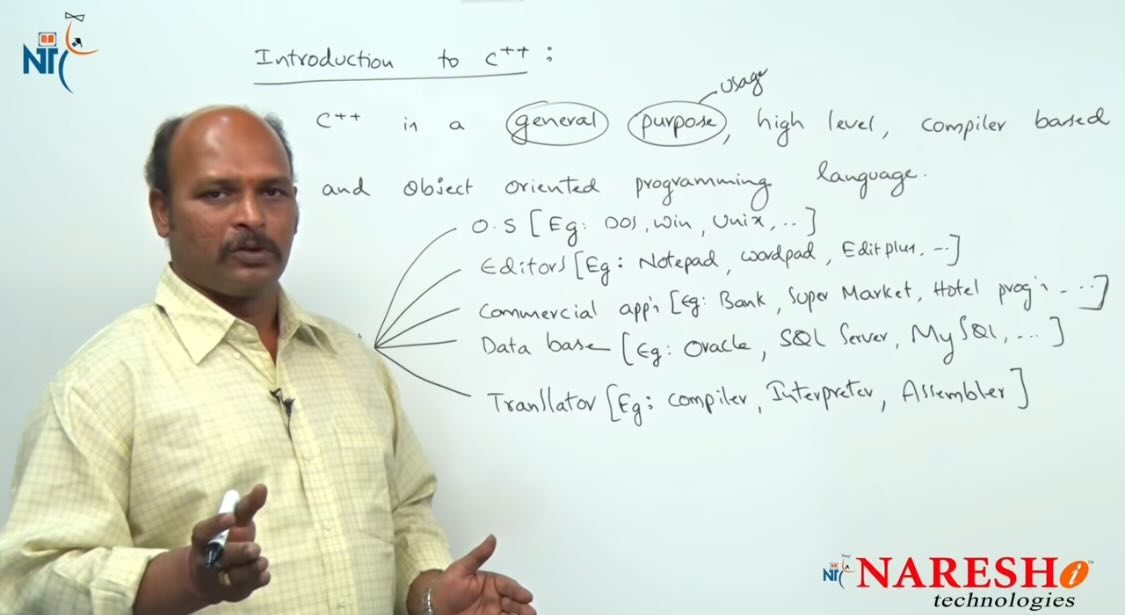 NTC
Introduction to C++ :
usage
C++ is a general purpose, high level, compiler based
and object oriented programming language.
O.S [Eg: DOS, Win, Unix, ..]
Editors [Eg: Notepad, wordpad, Editplus, ...]
Commercial app's [Eg: Bank, Super Market, Hotel prog's ...]
Data base [Eg: Oracle, SQL Server, MySQL, ...]
Translator [Eg: compiler, Interpreter, Assembler]
NARESH i
technologies